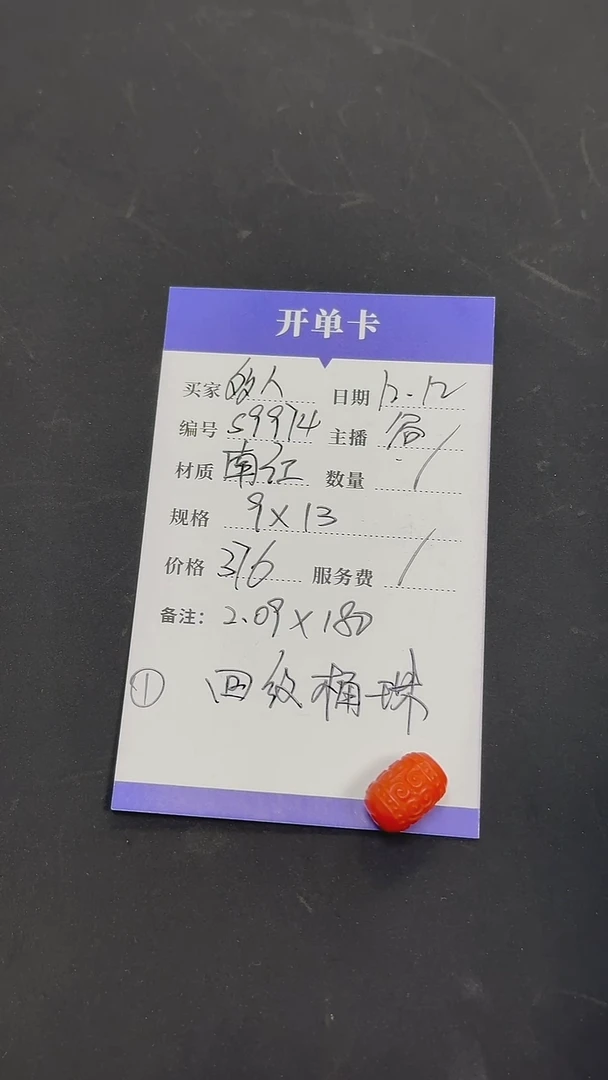 开单卡
买家 日期 12.12
编号 59974 主播 局
材质 南红 数量 /
规格 9×13
价格 376 服务费 /
备注： 2.09×180
① 回纹桶珠